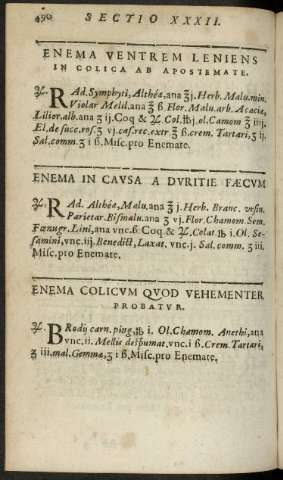 490 SECTIO XXXII.
ENEMA VENTREM LENIENS
IN COLICA AB APOSTEMATE.
℞. RAd. Symphyti, Althéa, ana ʒj. Herb. Malu. min.
Violar Melil, ana ℥ ß. Flor. Malu. arb. Acaciæ,
Lilior. alb. ana ʒ ij. Coq & ℞. Col. ℔j. ol. Camom ℥ iiij.
El. de succ. ros. ʒ vj. cas. rec. extr ℥ ß. crem. Tartari, ʒ ij.
Sal, comm. ʒ i ß Misc. pro Enemate.
ENEMA IN CAVSA A DVRITIE FÆCVM
℞. RAd. Althéa, Malu, ana ℥ j. Herb. Branc. vrsin.
Parietar. Bismalu. ana ʒ vj. Flor. Chamom. Sem.
Fœnugr. Lini, ana vnc. ß Coq. & ℞. Colat. ℔ i. Ol. Se-
samini, vnc. iij. Benedict, Laxat. vnc. j. Sal. comm. ʒ iii.
Misc. pro Enemate.
ENEMA COLICVM QVOD VEHEMENTER
PROBATVR.
℞. BRodij carn. ping. ℔ i. Ol. Chamom. Anethi, ana
vnc. ii. Mellis despumat, vnc. i ß. Crem. Tartari,
ʒ iii. sal. Gemmæ, ʒ i ß, Misc, pro Enemate.